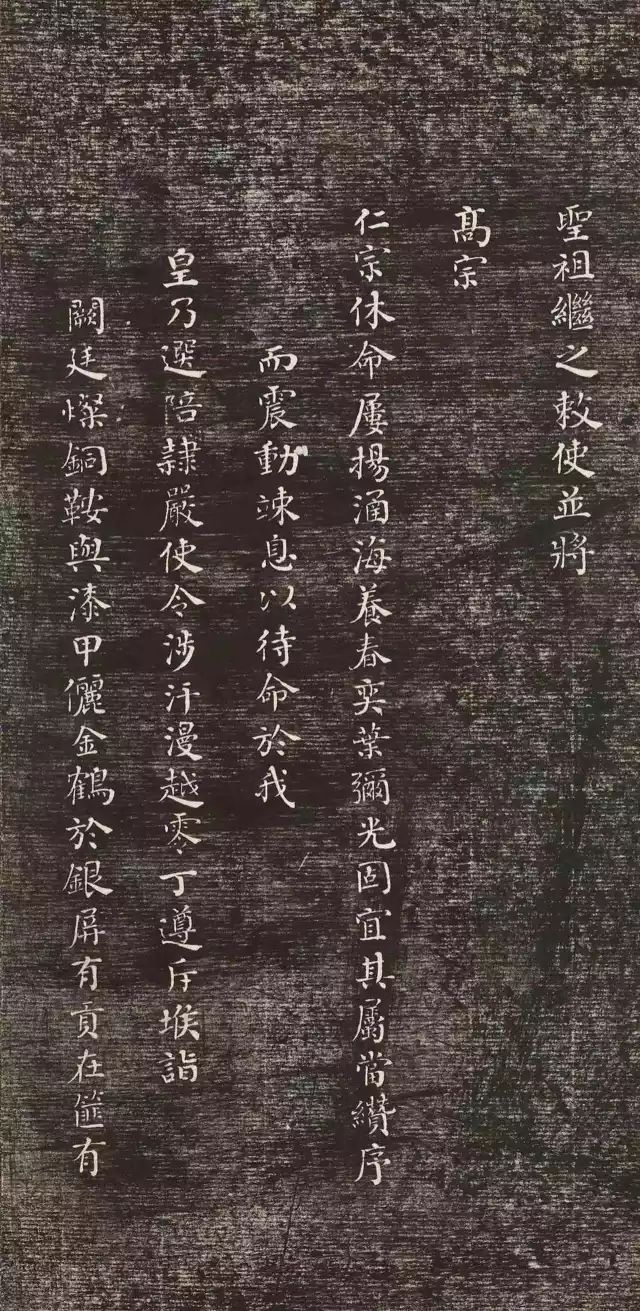 聖祖繼之敕使並將
髙宗
仁宗休命屢揚涵海養春奕葉彌光固宜其屬當纘序
而震動竦息以待命於我
皇乃選陪隸嚴使令涉汗漫越零丁遵斥堠詣
闕廷燦銅鞍與漆甲儷金鶴於銀屏有貢在篚有